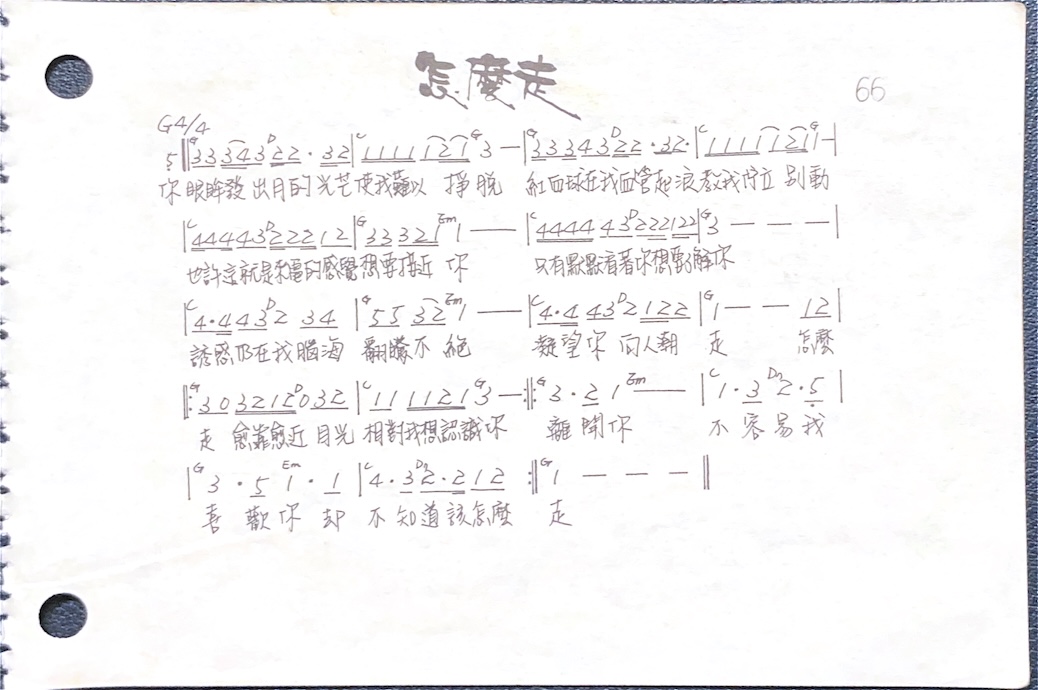 怎麼走
66
G4/4
G D C G G D C G
5 ‖: 3 3 3 4 3 2 2 · 3 2 | 1 1 1 1 1 2 1 3 — | 3 3 3 4 3 2 2 · 3 2 · | 1 1 1 1 1 2 1 1 — |
你眼眸發出月的光芒使我難以 掙脫 紅血球在我血管起浪教我佇立 別動
C D G Em C D G
| 4 4 4 4 3 2 2 2 1 2 | 3 3 3 2 1 1 — — | 4 4 4 4 4 3 2 2 2 1 2 2 | 3 — — — |
也許這就是 的感覺想要接近 你 只有默默看著你想要了解你
C D G Em C D G
| 4 · 4 4 3 2 3 4 | 5 5 3 2 1 — — | 4 · 4 4 3 2 1 2 2 | 1 — — 1 2 |
誘惑仍在我腦海 翻騰不絕 凝望你 向人潮 走 怎麼
G D C G G Em C D
‖: 3 0 3 2 1 2 0 3 2 | 1 1 1 1 2 1 3 — :‖: 3 · 2 1 — — | 1 · 3 2 · 5 |
走 愈靠愈近 目光 相對我想認識你 離開你 不容易我
G Em C D G
| 3 · 5 1 · 1 | 4 · 3 2 · 2 1 2 :‖ 1 — — — ‖
喜歡你 却 不知道該怎麼 走